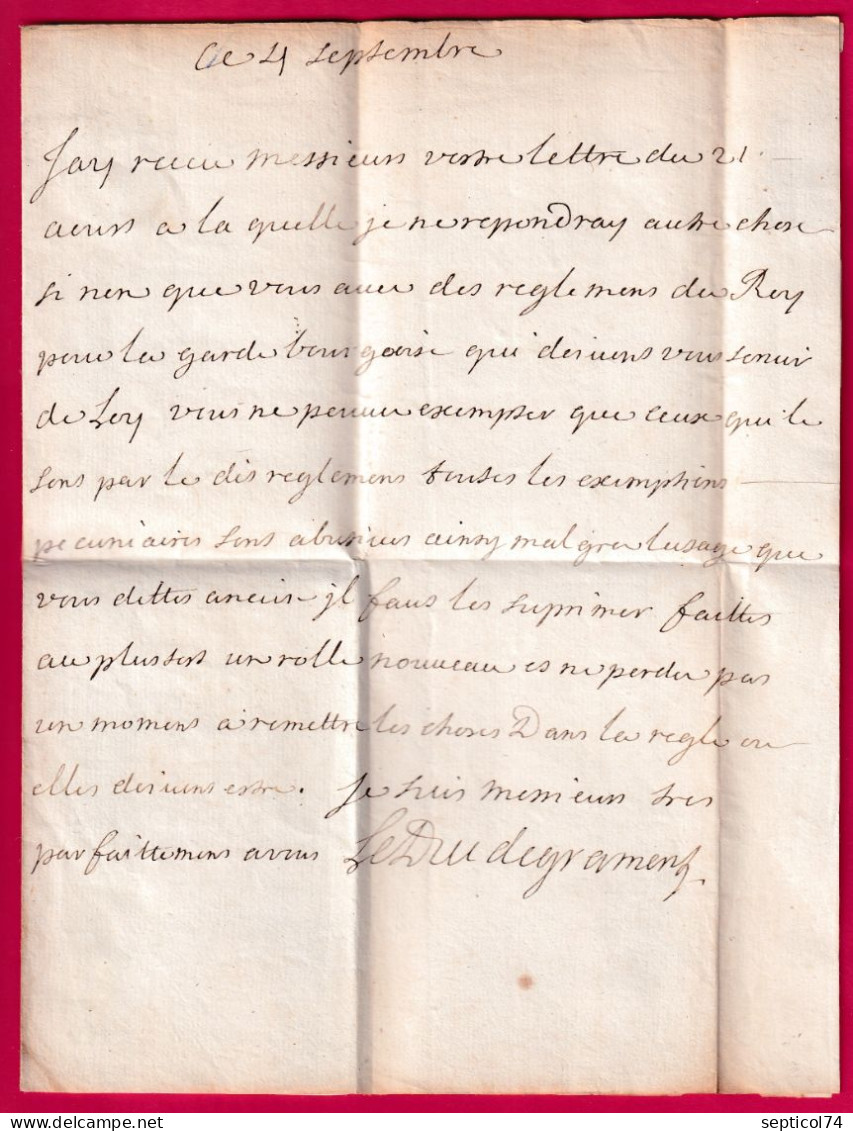 Ce 4 septembre
Jay receu messieurs vostre lettre du 21
aoust a la quelle je ne repondray autre chose
si non que vous aves des reglemens du Roy
pour la garde bourgoise qui doivent vous servir
de Loy vous ne pouves exempter que ceux qui le
sont par le dis reglemens toutes les exemptions
pecuniaires sont abusives ainsy malgré lusage que
vous dittes avoir jl faut les suprimer faittes
au plustost un rolle nouveau et ne perdes pas
un moment a remettre les choses Dans la regle ou
elles doivent estre. Je suis messieurs tres
parfaittement a vous Le Duc de gramont
septicol74